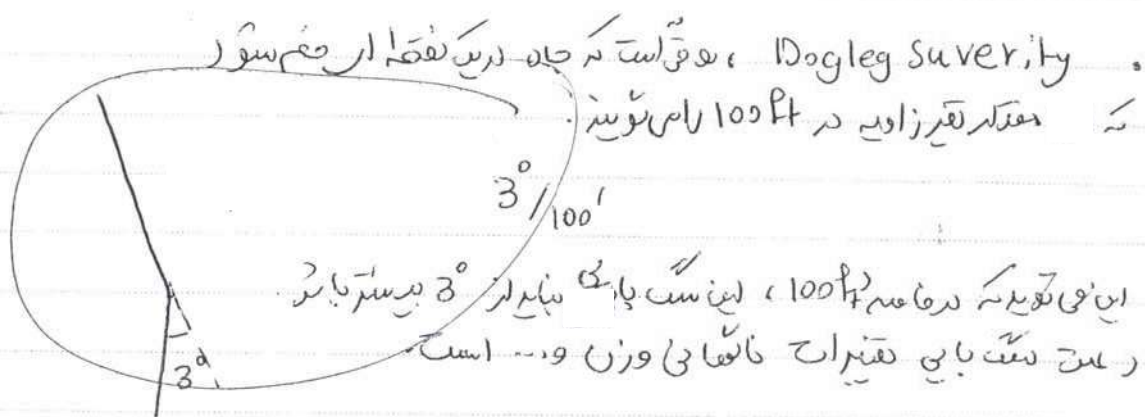 . Dogleg Suverity ، موقعی است که چاه در یک نقطه ای خم شود
که مقدار تغییر زاویه در 100 ft را می گویند.
3°/100'
این می گوید که در فاصله 100 ft، این سگ پایی نباید از 3° بیشتر باشد.
علت سگ پایی تغییرات ناگهانی وزن و... است.
3°